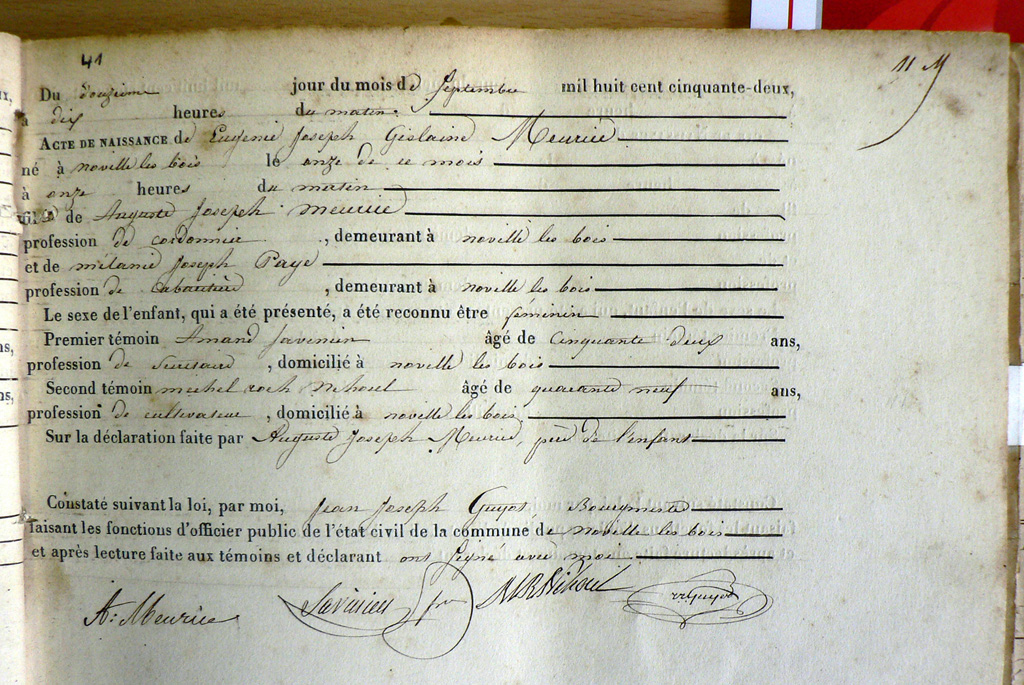 41
Du Douzieme jour du mois de Septembre mil huit cent cinquante-deux,
à dix heures du matin.
ACTE DE NAISSANCE de Eugenie Joseph Gislaine Meurice
né à noville les bois le onze de ce mois
à onze heures du matin
de Auguste Joseph meurice
profession de cordonnier, demeurant à noville les bois
et de mélanie Joseph Paye
profession de cabaretière, demeurant à noville les bois
Le sexe de l'enfant, qui a été présenté, a été reconnu être féminin
Premier témoin Amand Savinien âgé de cinquante deux ans,
profession de, domicilié à noville les bois
Second témoin michel roch Nihoul âgé de quarante neuf ans,
profession de cultivateur, domicilié à noville les bois
Sur la déclaration faite par Auguste Joseph Meurice, père de l'enfant
Constaté suivant la loi, par moi, Jean Joseph Guyot Bourgmestre
faisant les fonctions d'officier public de l'état civil de la commune de noville les bois
et après lecture faite aux témoins et déclarant ont signé avec moi
A. Meurice Savinien MRNihoul Guyot